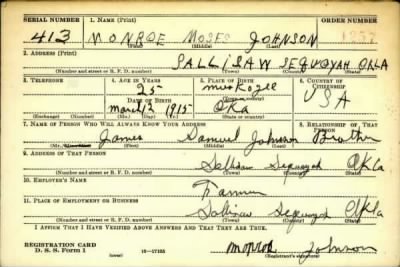 SERIAL NUMBER 1. NAME (Print) ORDER NUMBER
413 MONROE MOSES JOHNSON 1257
(First) (Middle) (Last)
2. ADDRESS (Print)
SALLISAW SEQUOYAH OKLA
(Number and street or R. F. D. number) (Town) (County) (State)
3. TELEPHONE 4. AGE IN YEARS 5. PLACE OF BIRTH 6. COUNTRY OF CITIZENSHIP
25 Muskogee
DATE OF BIRTH (Town or county) USA
March 2 1915 OKA
(Exchange) (Number) (Mo.) (Day) (Yr.) (State or country)
7. NAME OF PERSON WHO WILL ALWAYS KNOW YOUR ADDRESS 8. RELATIONSHIP OF THAT PERSON
James Samuel Johnson Brother
(First) (Middle) (Last)
9. ADDRESS OF THAT PERSON
Sallisaw Sequoyah OKla
(Number and street or R. F. D. number) (Town) (County) (State)
10. EMPLOYER'S NAME
Farmer
11. PLACE OF EMPLOYMENT OR BUSINESS
Sallisaw Sequoyah OKla
(Number and street or R. F. D. number) (Town) (County) (State)
I AFFIRM THAT I HAVE VERIFIED ABOVE ANSWERS AND THAT THEY ARE TRUE.
REGISTRATION CARD
D. S. S. Form 1 Monroe Johnson
(Registrant's signature)